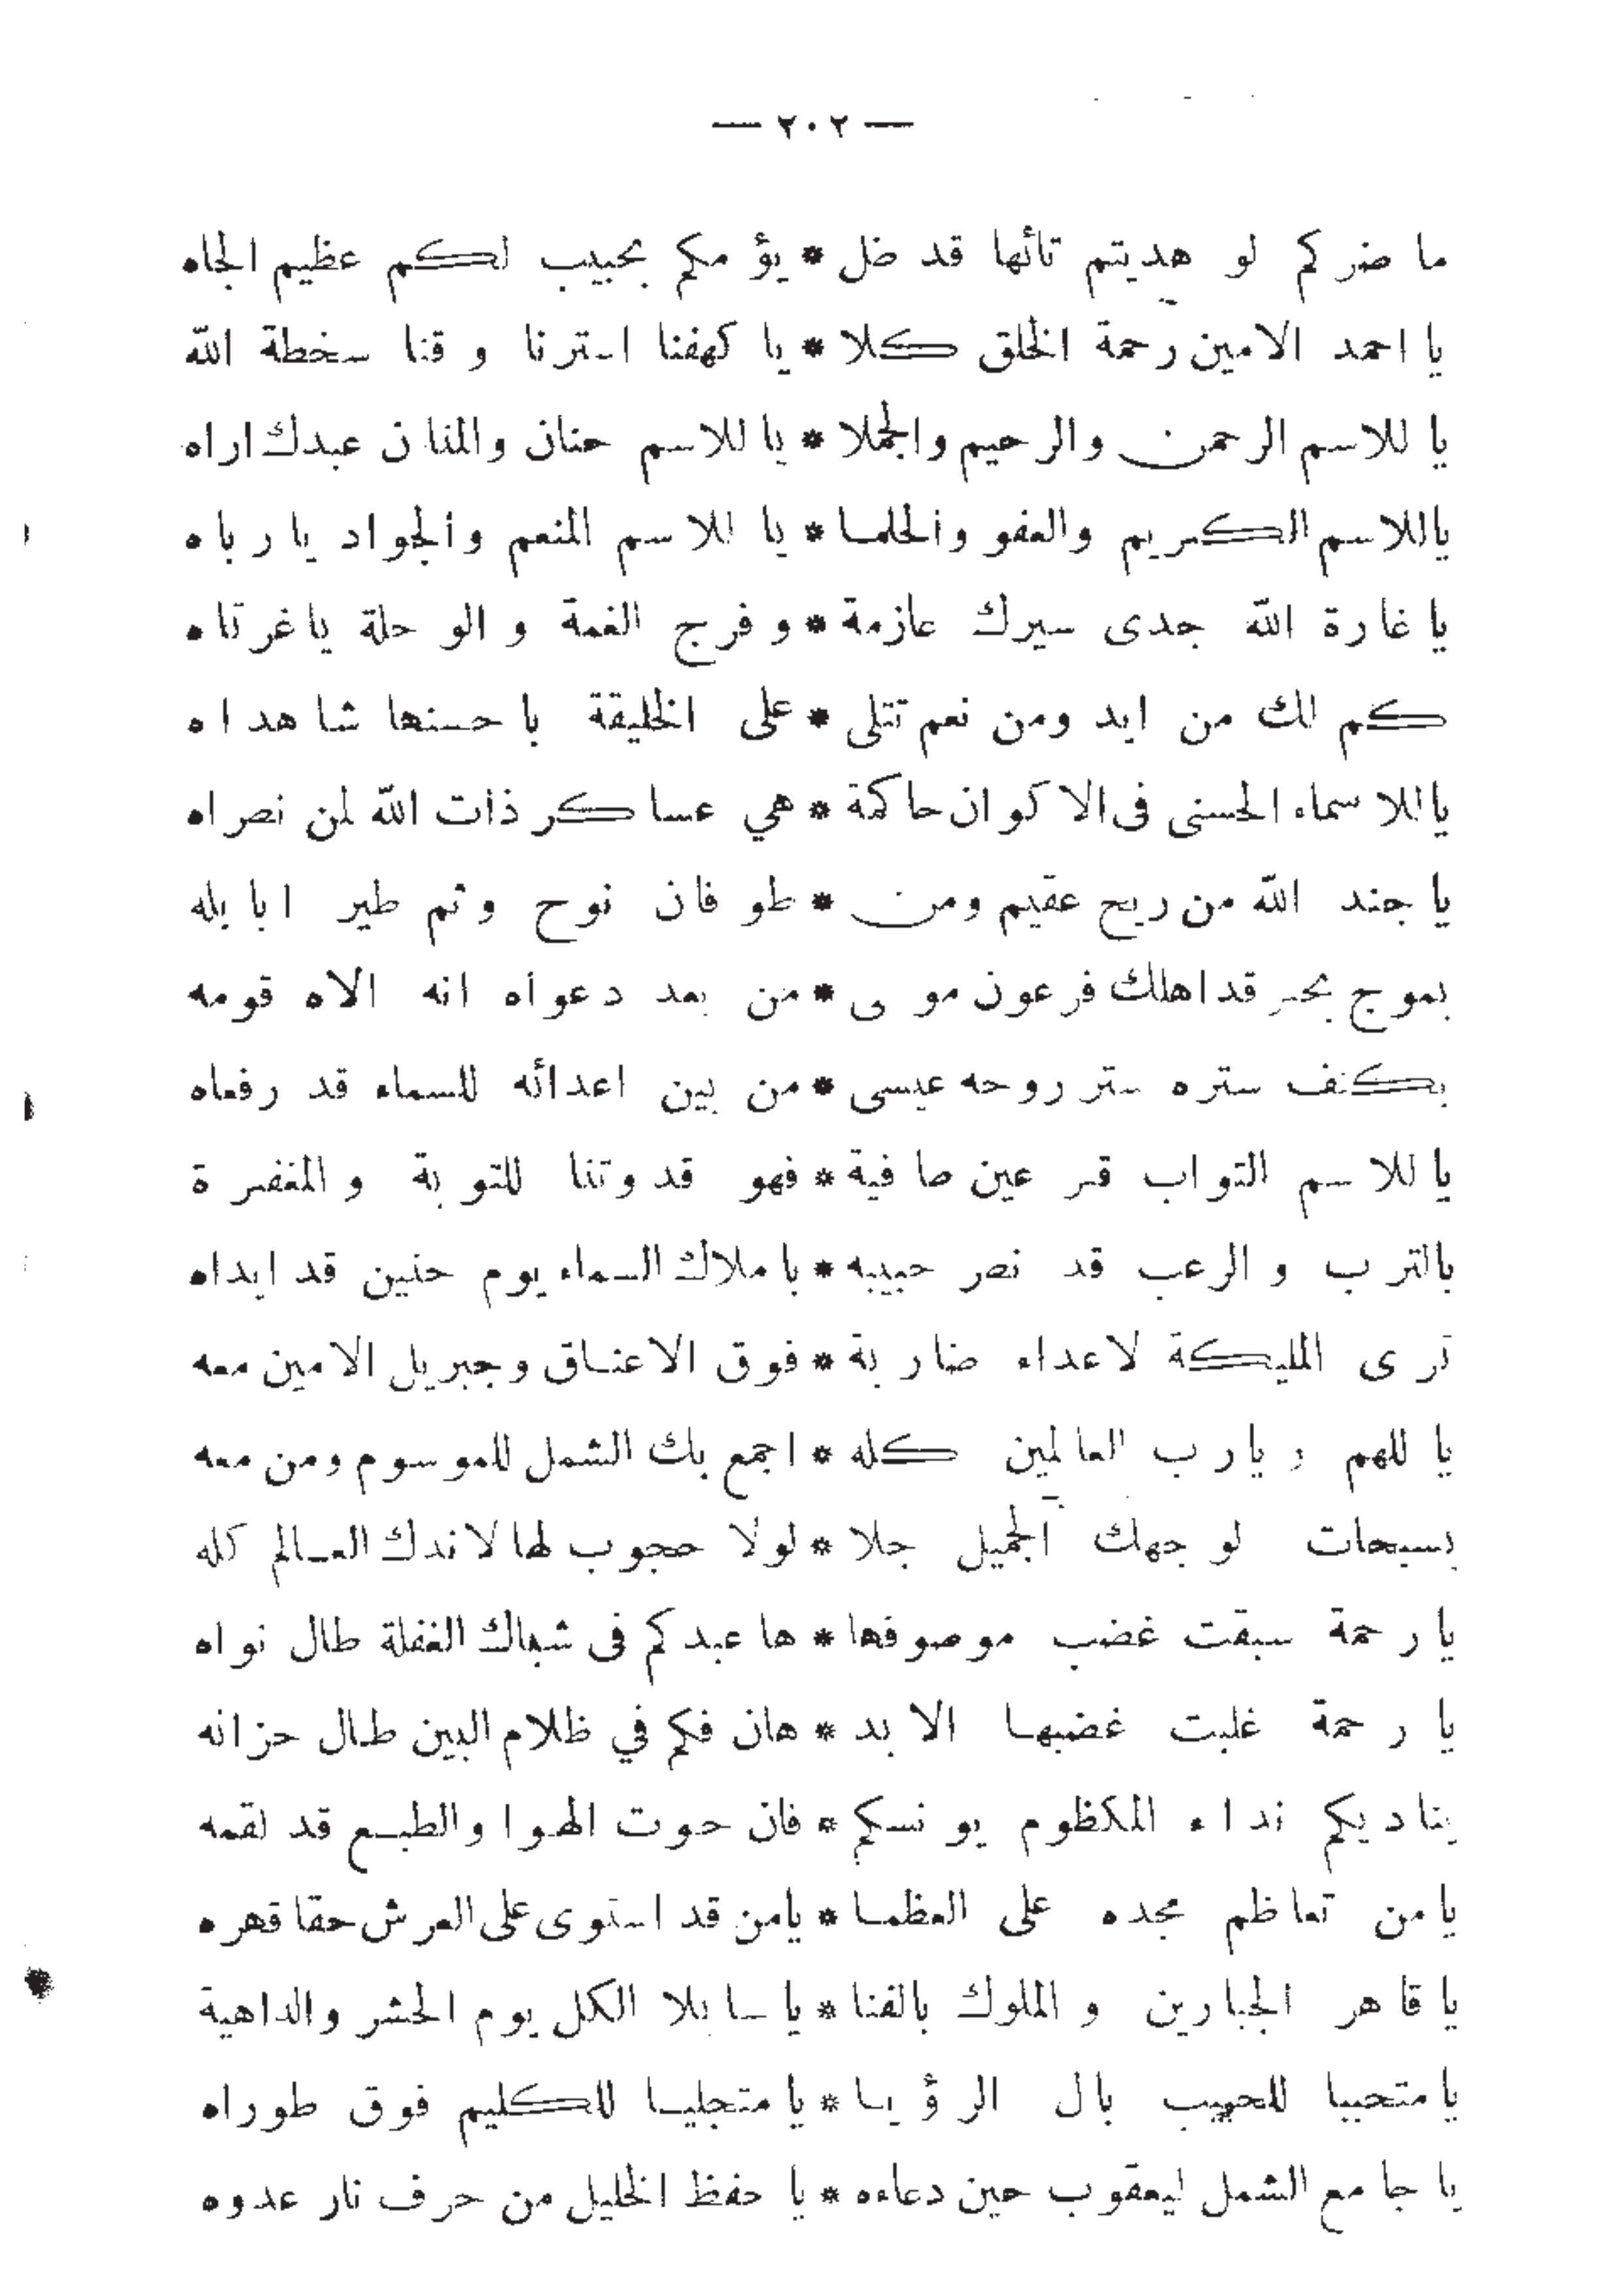 — ٢٠٢ —
ما ضركم لو هديتم تائها قد ضل * يؤمكم بحبيب لكم عظيم الجاه
يا احمد الامين رحمة الخلق كلا * يا كهفنا استرنا وقنا سخطة الله
يا للاسم الرحمن والرحيم والجملا * يا للاسم حنان والمنان عبدك اراه
ياللاسم الكريم والعفو والحلما * يا للاسم المنعم والجواد يا رباه
يا غارة الله جدى سيرك عازمة * وفرج الغمة والوحلة ياغرتاه
كم لك من ايد ومن نعم تتلى * على الخليقة باحسنها شاهداه
ياللاسماء الحسنى فى الاكوان حاكمة * هي عساكر ذات الله لمن نصراه
يا جند الله من ريح عقيم ومن * طوفان نوح وثم طير ابابيله
بموج بحر قد اهلك فرعون موسى * من بعد دعواه انه الاه قومه
بكنف ستره ستر روحه عيسى * من بين اعدائه للسماء قد رفعاه
يا للاسم التواب قر عين صافية * فهو قدوتنا للتوبة والمغفرة
بالترب والرعب قد نصر حبيبه * باملاك السماء يوم حنين قد ايداه
ترى المليكة لاعداء ضاربة * فوق الاعناق وجبريل الامين معه
يا للهم ويارب العالمين كله * اجمع بك الشمل للموسوم ومن معه
بسبحات لوجهك الجميل جلا * لولا حجوب لها لاندك العالم كله
يا رحمة سبقت غضب موصوفها * ها عبدكم فى شباك الغفلة طال نواه
يا رحمة غلبت غضبها الابد * هان فكم في ظلام البين طال حزانه
يناديكم نداء المكظوم يونسكم * فان حوت الهوا والطبع قد لقمه
يا من تعاظم مجده على العظما * يامن قد استوى على العرش حقا قهره
يا قاهر الجبارين والملوك بالفنا * يا سابلا الكل يوم الحشر والداهية
يا متحببا للحبيب بال الرؤيا * يا متجليا للكليم فوق طوراه
يا جامع الشمل ليعقوب حين دعاءه * يا حفظ الخليل من حرف نار عدوه